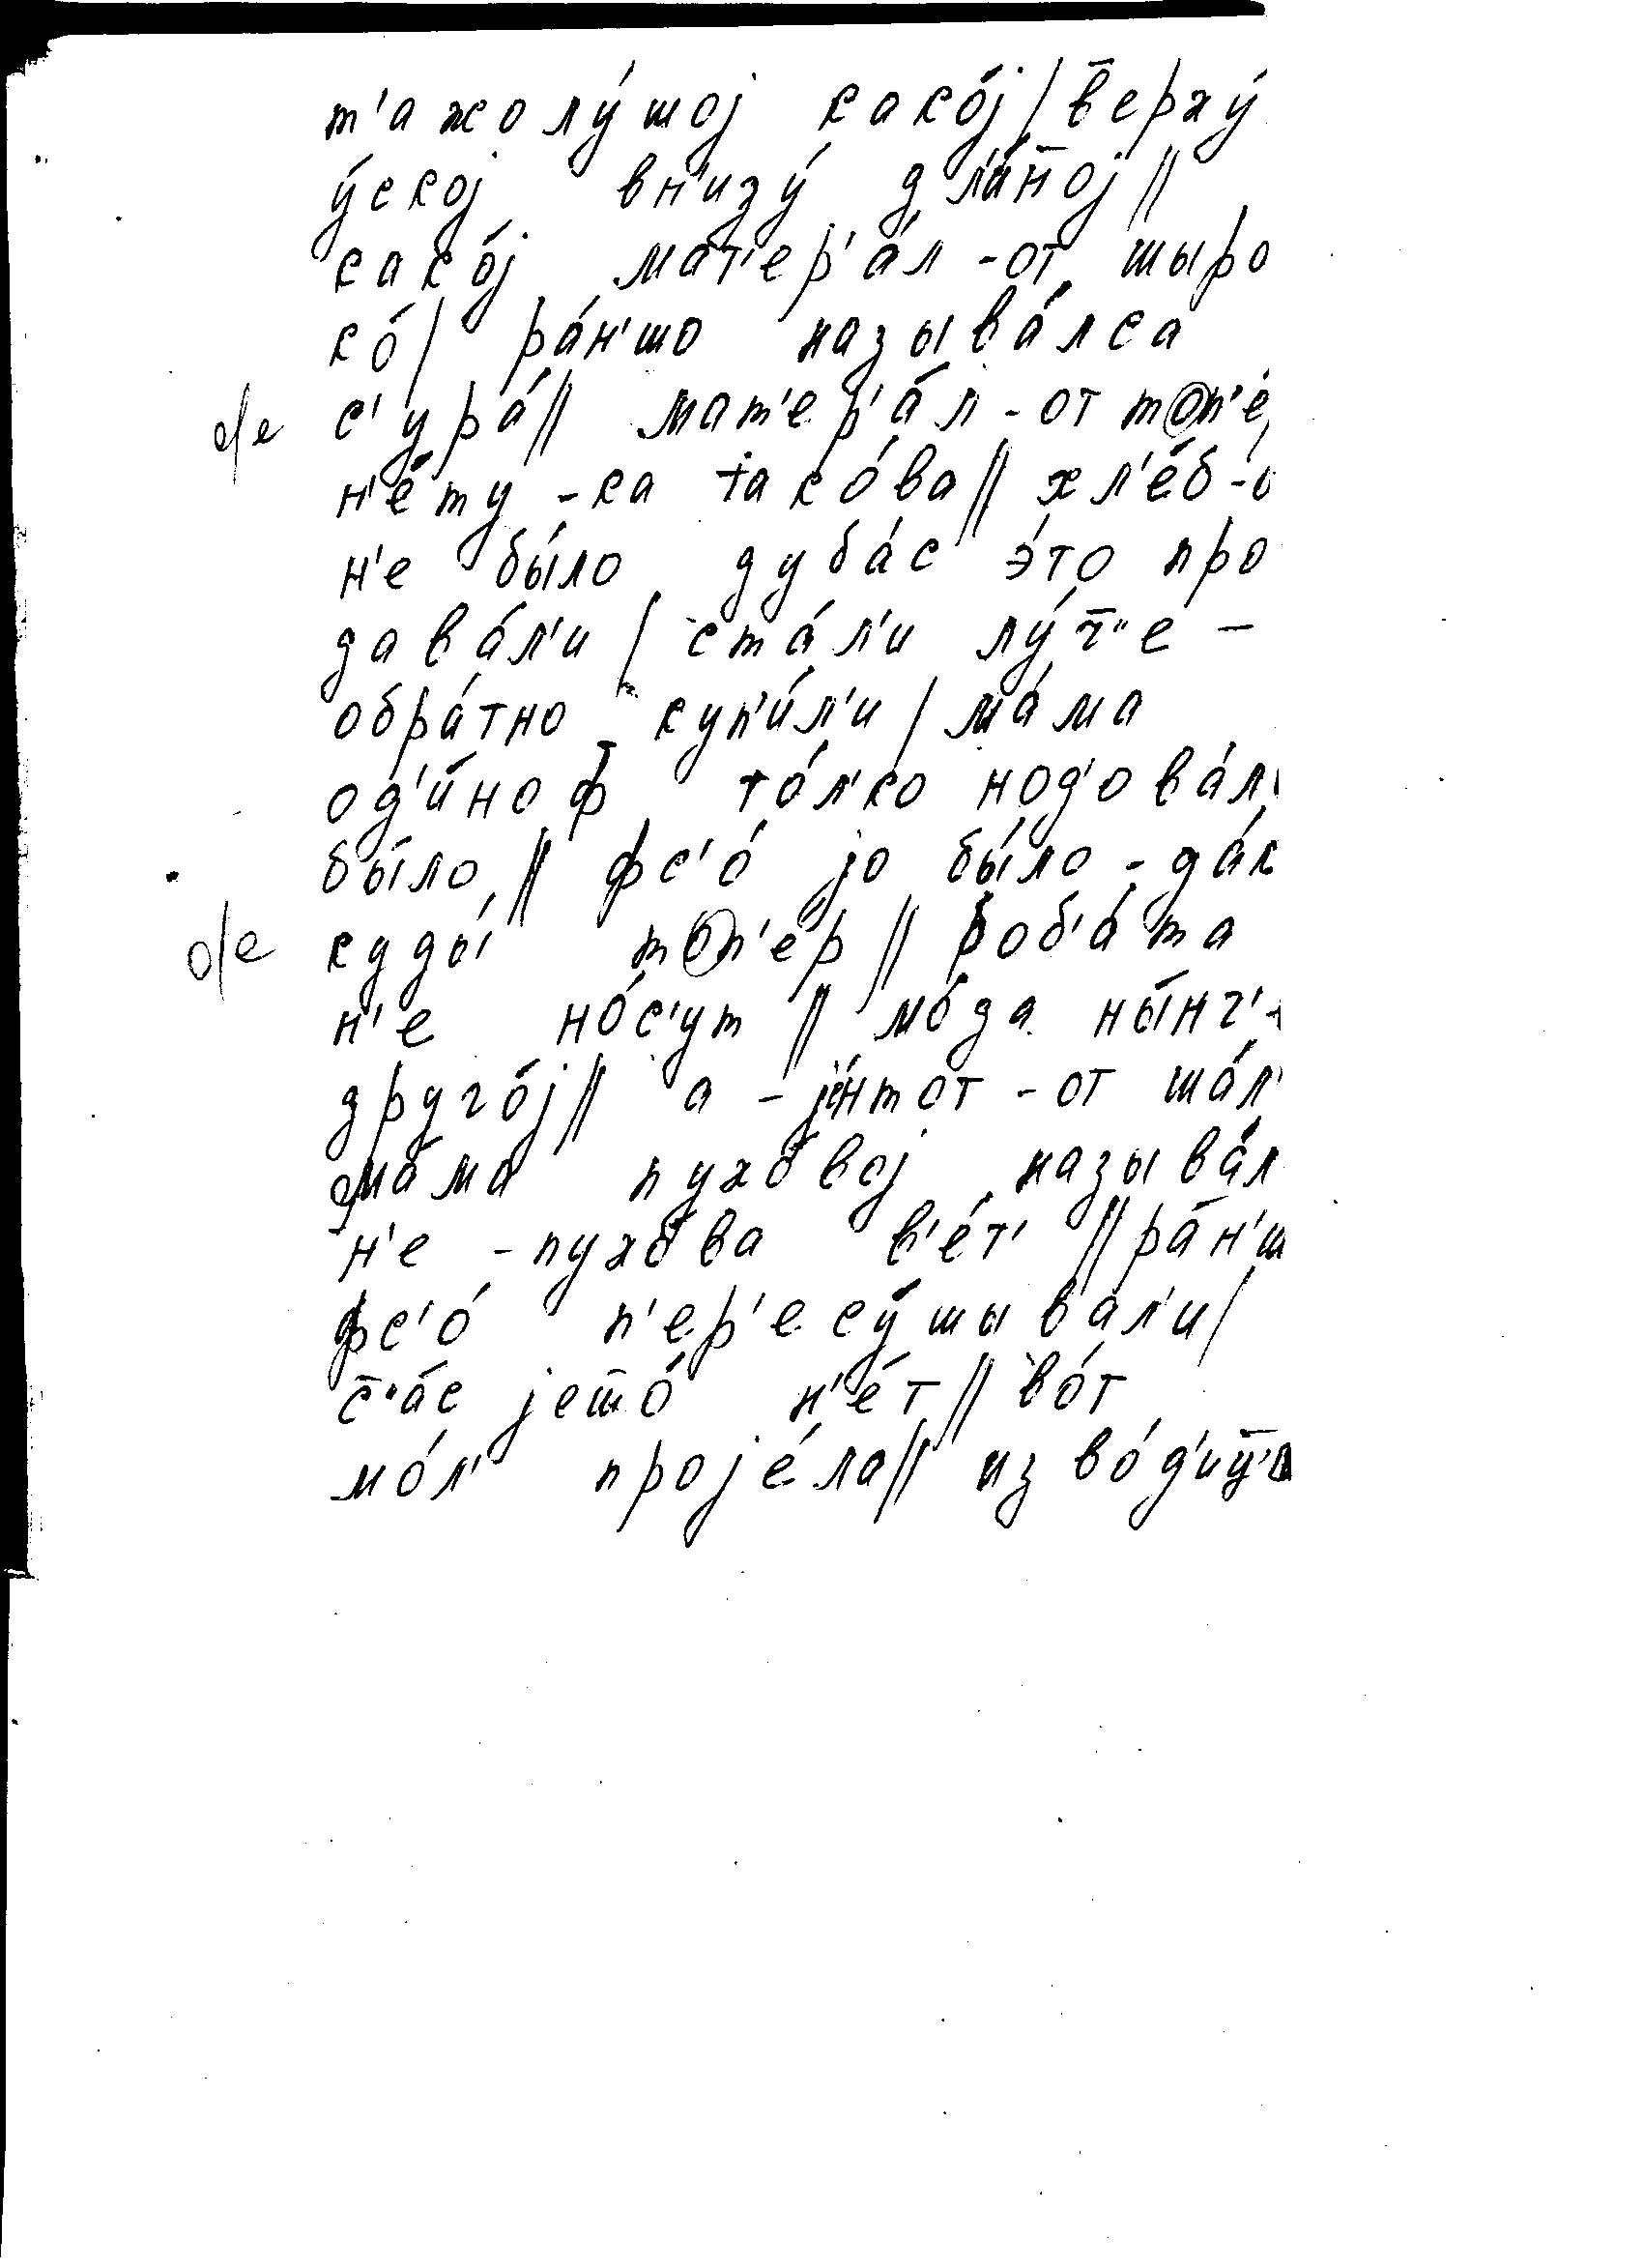 т'ажолу́шој како́ј / в̄ерху́
у́ској вн'изу́ дл'и́н̄ој //
како́ј мат'ер'а́л -от шыро
ко́ / ра́н'шо называ́лса
о/е с'ура́ // мат'ер'а́л -от топ'е́
н'е́ту -ка тако́ва // хл'е́б-
н'е бы́ло дуба́с э́то про
дава́л'и / ста́л'и лу́т̄'е –
обра́тно куп'и́л'и / ма́ма
од'и́ноф то́л'ко нод'ова́л
бы́ло // фс'о́ јо бы́ло - да́к
о/е куды́ топ'е́р // роб'а́та
н'е но́с'ут // мо́да ны́нч'
друго́ј // а - је́нтот -от ша́л'
ма́ма пухо́вој называ́л
н'е -пухо́ва в'е́т' // ра́н'ш
фс'о́ п'ер'есу́шывал'и /
с̄'а́с јеш̄о́ н'е́т // во́т
мо́л' проје́ла // изво́д'иц̄